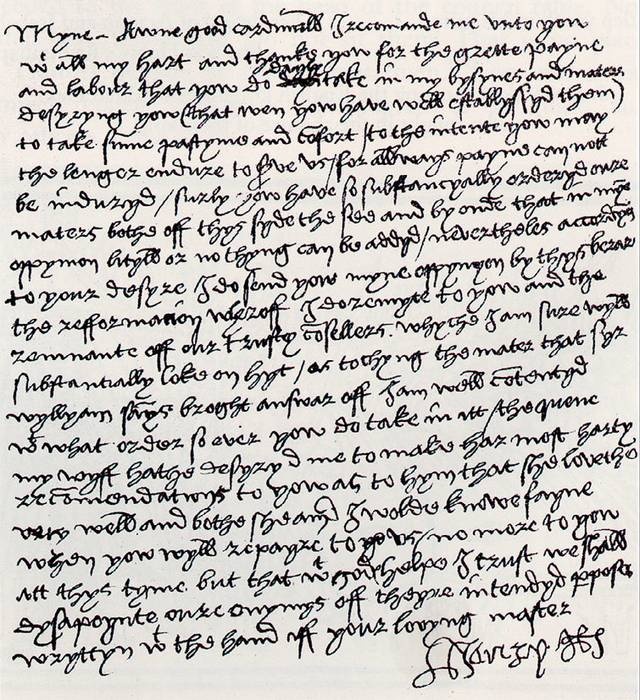 Myne awne good cardinall I recomande me unto yow
wt all my hart and thanke yow for the grette payne
and labour that yow do dayly take in my bysynes and maters
desyryng yow (that wen yow have well establyssyd them)
to take summe pastyme and cofort / to the intente yow may
the lenger endure to serve us / for allways payne can nott
be induryd / surly yow have so substancyally orderyd oure
maters bothe off thys syde the see and byonde that in myne
oppynion lityll or no thyng can be addyd / nevertheles accordyng
to your desyre I do send yow myne oppynyon by thys berar
the refformacion wheroff I do remytte to yow and the
remnante off our trusty cosellers whyche I am sure wyll
substantially loke on hyt / as tochyng the mater that syr
wyllyam say broght answar off I am well cotentyd
wt what order so ever yow do take in itt / the quene
my wyff hathe desyryd me to make har most harty
recomendations to yow as to hym that she lovethe
very well and bothe she and I wolde knowe fayne
when yow wyll repayre to us / no more to yow
att thys tyme but that wt gods helpe I trust we shall
dysapoynte oure enymys off theyre intendyd pposse
wryttyn wt the hand off your lovyng master
Henry